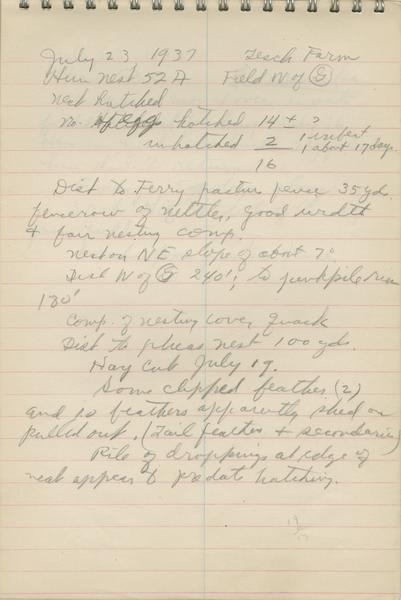 July 23, 1937 Zesch Farm
Hun nest 52A Field W of G
nest hatched
no. of eggs hatched 14 ± ?
unhatched 2 1 infert 1 about 17 days
16
Dist to Ferry pasture fence 35 yd.
fencerow of nettles, good width
+ fair nesting comp.
nest on NE slope of about 7°
Dist W of G 240'; to junkpile
180'
Comp. of nesting cover, quack
Dist to pheas nest 100 yds.
Hay cut July 19.
Some clipped feathers (2)
and feathers apparently shed or
pulled out. (Tail feather + secondaries)
Pile of droppings at edge of
nest appear to predate hatching.
19
17